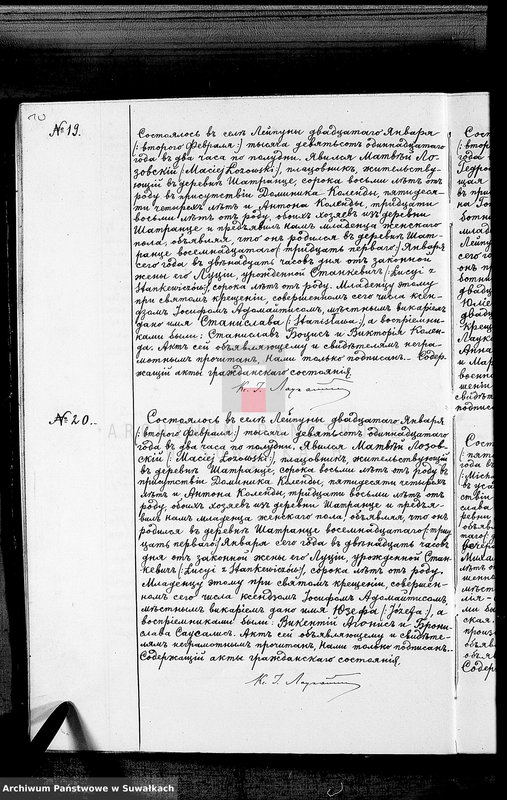 № 19.
Состоялось въ селѣ Лейпуны двадцатаго Января
(:второго Февраля:) тысяча девятьсотъ одиннадцатаго
года въ два часа по полудни. Явился Матвѣй Ло-
зовскій (:Maciej Łozowski:), плацовникъ, жительству-
ющій въ деревнѣ Шатранце, сорока восьми лѣтъ отъ
роду въ присутствіи Доминика Коленды, пятидеся-
ти четырехъ лѣтъ и Антона Коленды, тридцати
восьми лѣтъ отъ роду, обоихъ хозяевъ изъ деревни
Шатранце и предъявилъ намъ младенца женскаго
пола, объявляя, что онъ родился въ деревнѣ Шат-
ранце восемнадцатаго (тридцать перваго:) Января
сего года въ двѣнадцать часовъ дня отъ законной
жены его Луціи, урожденной Станкевичъ (:Łucyi z
Stankewiczów:), сорока лѣтъ отъ роду. Младенцу этому
при святомъ крещеніи, совершенномъ сего числа ксен-
дзомъ Іосифомъ Адомайтисомъ, мѣстнымъ викаріемъ
дано имя Станислава (:Stanisława:), а воспріемни-
ками были: Станиславъ Боцисъ и Викторія Колен-
да. Актъ сей объявляющему и свидѣтелямъ негра-
мотнымъ прочитанъ, Нами только подписанъ. Содер-
жащій акты гражданскаго состоянія.
№ 20.
Состоялось въ селѣ Лейпуны двадцатаго Января
(:второго Февраля:) тысяча девятьсотъ одиннадцатаго
года въ два часа по полудни. Явился Матвѣй Лозов-
скій (:Maciej Łozowski:), плацовникъ, жительствующій
въ деревнѣ Шатранце, сорока восьми лѣтъ отъ роду въ
присутствіи Доминика Коленды, пятидесяти четырехъ
лѣтъ и Антона Коленды, тридцати восьми лѣтъ отъ
роду, обоихъ хозяевъ изъ деревни Шатранце и предъя-
вилъ намъ младенца женскаго пола, объявляя, что онъ
родился въ деревнѣ Шатранце восемнадцатаго (:трид-
цать перваго:) Января сего года въ двѣнадцать часовъ
дня отъ законной жены его Луціи, урожденной Стан-
кевичъ (:Łucyi z Stankewiczów:), сорока лѣтъ отъ роду.
Младенцу этому при святомъ крещеніи, совершен-
номъ сего числа ксендзомъ Іосифомъ Адомайтисомъ,
мѣстнымъ викаріемъ дано имя Юзефа (:Józefa:), а
воспріемниками были: Викентій Агонисъ и Брони-
слава Саусалисъ. Актъ сей объявляющему и свидѣте-
лямъ неграмотнымъ прочитанъ, Нами только подписанъ.
Содержащій акты гражданскаго состоянія.
Archiwum Państwowe w Suwałkach